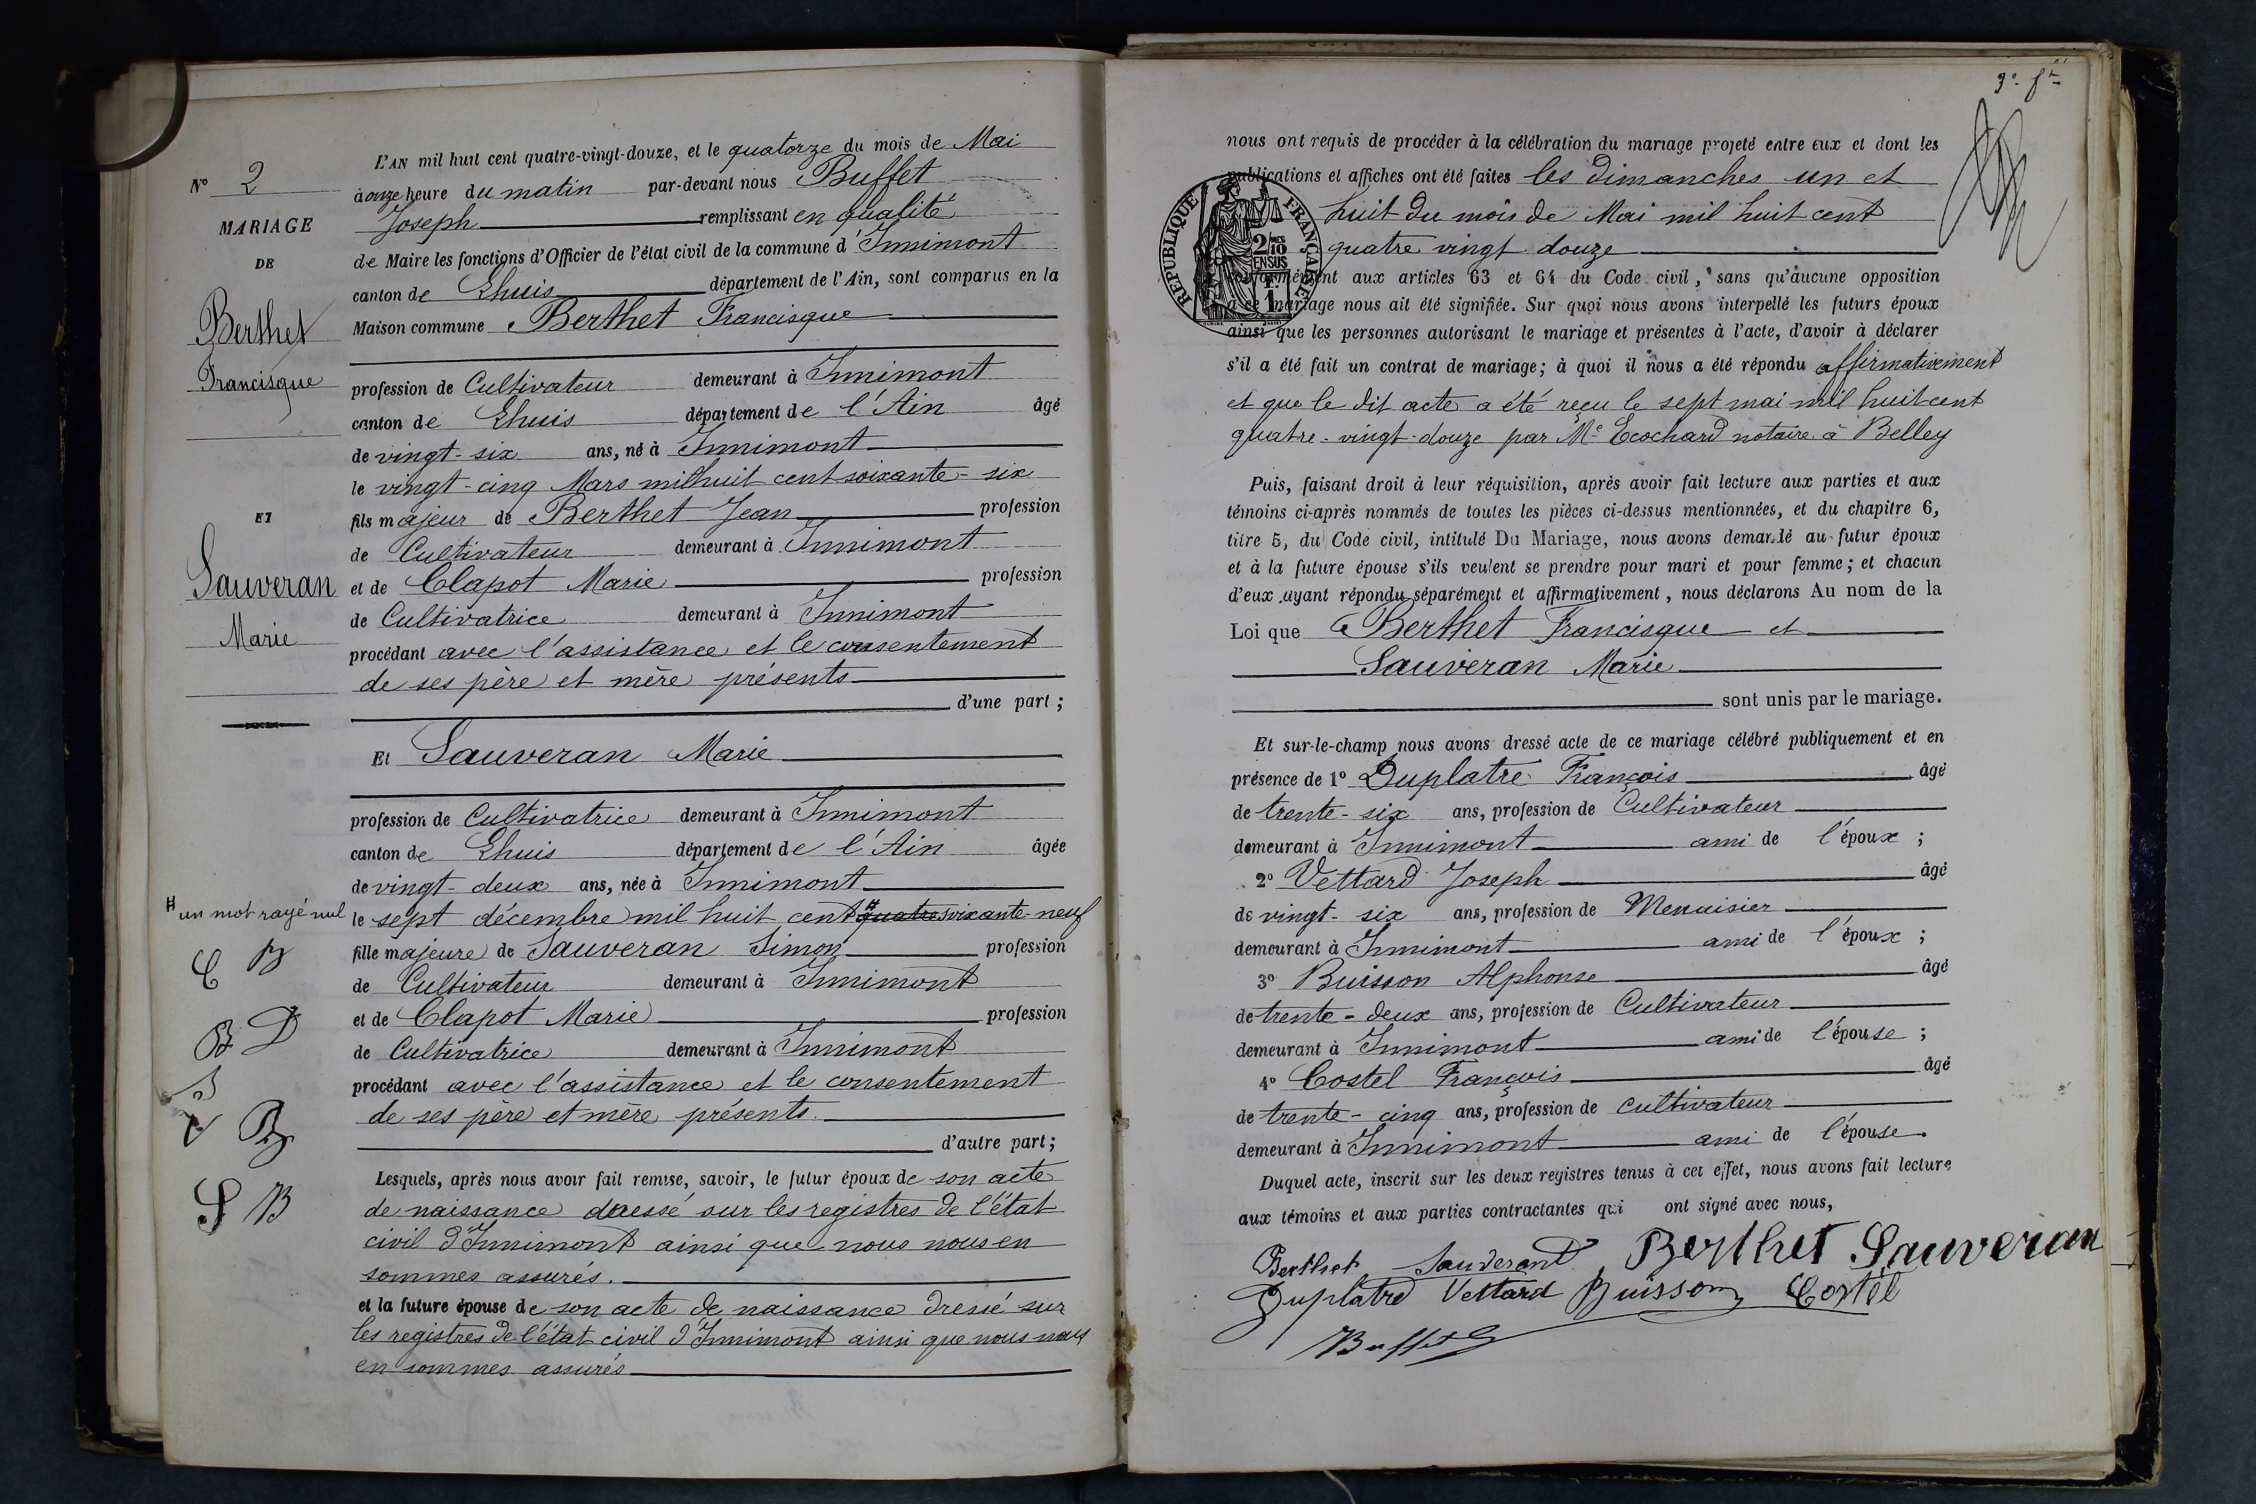 N° 2
MARIAGE
DE
Berthet
Francisque
ET
Sauveran
Marie
# un mot rayé nul
C B
B D
V B
S B
L'AN mil huit cent quatre-vingt-douze, et le quatorze du mois de Mai
à onze heure du matin par-devant nous Buffet
Joseph remplissant en qualité
de Maire les fonctions d'Officier de l'état civil de la commune d'Innimont
canton de Lhuis département de l'Ain, sont comparus en la
Maison commune Berthet Francisque
profession de Cultivateur demeurant à Innimont
canton de Lhuis département de l'Ain âgé
de vingt-six ans, né à Innimont
le vingt-cinq Mars mil huit cent soixante-six
fils majeur de Berthet Jean profession
de Cultivateur demeurant à Innimont
et de Clapot Marie profession
de Cultivatrice demeurant à Innimont
procédant avec l'assistance et le consentement
de ses père et mère présents
d'une part;
Et Sauveran Marie
profession de Cultivatrice demeurant à Innimont
canton de Lhuis département de l'Ain âgée
de vingt-deux ans, née à Innimont
le sept décembre mil huit cent # quatre soixante-neuf
fille majeure de Sauveran Simon profession
de Cultivateur demeurant à Innimont
et de Clapot Marie profession
de Cultivatrice demeurant à Innimont
procédant avec l'assistance et le consentement
de ses père et mère présents.
d'autre part;
Lesquels, après nous avoir fait remise, savoir, le futur époux de son acte
de naissance dressé sur les registres de l'état
civil d'Innimont ainsi que nous nous en
sommes assurés.
et la future épouse de son acte de naissance dressé sur
les registres de l'état civil d'Innimont ainsi que nous nous
en sommes assurés
nous ont requis de procéder à la célébration du mariage projeté entre eux et dont les
publications et affiches ont été faites les dimanches un et
huit du mois de Mai mil huit cent
quatre vingt douze
RÉPUBLIQUE FRANÇAISE
2/10
EN SUS
conformément aux articles 63 et 64 du Code civil, sans qu'aucune opposition
à ce mariage nous ait été signifiée. Sur quoi nous avons interpellé les futurs époux
ainsi que les personnes autorisant le mariage et présentes à l'acte, d'avoir à déclarer
s'il a été fait un contrat de mariage; à quoi il nous a été répondu affirmativement
et que le dit acte a été reçu le sept mai mil huit cent
quatre-vingt-douze par Me Ecochard notaire à Belley
Puis, faisant droit à leur réquisition, après avoir fait lecture aux parties et aux
témoins ci-après nommés de toutes les pièces ci-dessus mentionnées, et du chapitre 6,
titre 5, du Code civil, intitulé Du Mariage, nous avons demandé au futur époux
et à la future épouse s'ils veulent se prendre pour mari et pour femme; et chacun
d'eux ayant répondu séparément et affirmativement, nous déclarons Au nom de la
Loi que Berthet Francisque et
Sauveran Marie
sont unis par le mariage.
Et sur-le-champ nous avons dressé acte de ce mariage célébré publiquement et en
présence de 1° Duplatre François âgé
de trente-six ans, profession de Cultivateur
demeurant à Innimont ami de l'époux ;
2° Vettard Joseph âgé
de vingt-six ans, profession de Menuisier
demeurant à Innimont ami de l'époux ;
3° Buisson Alphonse âgé
de trente-deux ans, profession de Cultivateur
demeurant à Innimont ami de l'épouse ;
4° Costel François âgé
de trente-cinq ans, profession de cultivateur
demeurant à Innimont ami de l'épouse.
Duquel acte, inscrit sur les deux registres tenus à cet effet, nous avons fait lecture
aux témoins et aux parties contractantes qui ont signé avec nous,
Berthet Sauverand Berthet Sauveran
Duplâtre Vettard Buisson Costel
Buffet